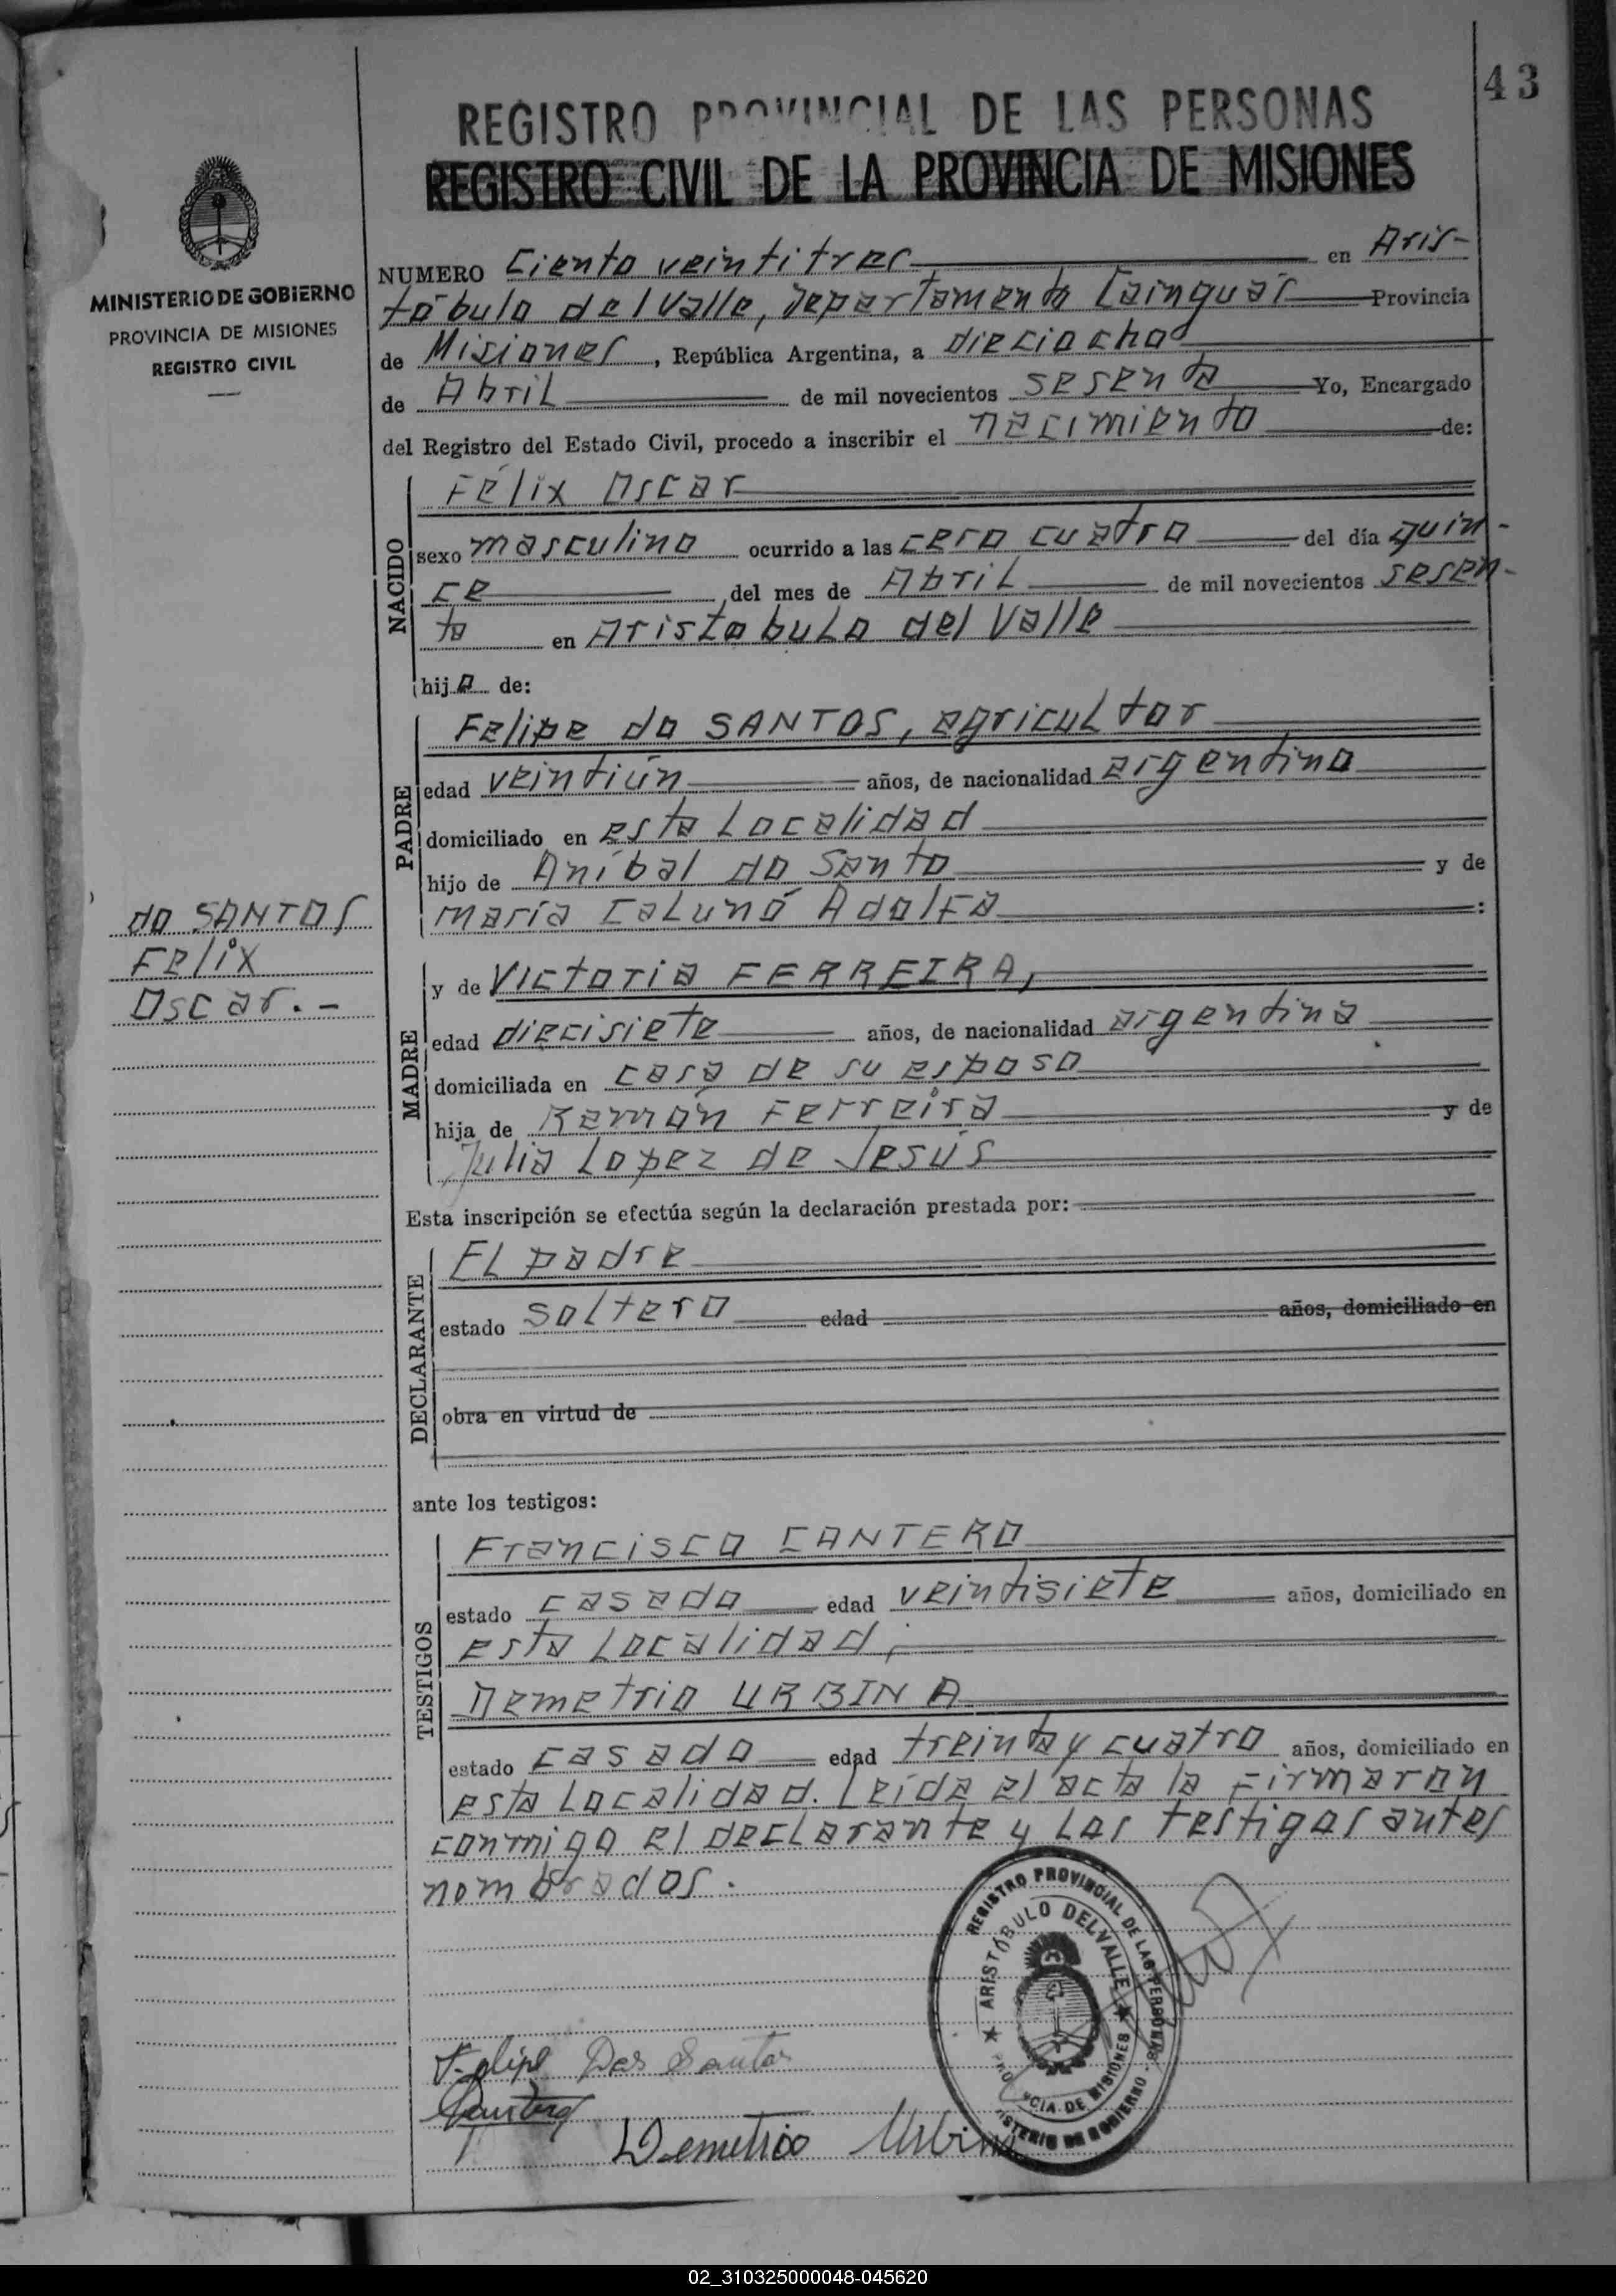 43
REGISTRO PROVINCIAL DE LAS PERSONAS
REGISTRO CIVIL DE LA PROVINCIA DE MISIONES
MINISTERIO DE GOBIERNO
PROVINCIA DE MISIONES
REGISTRO CIVIL
NUMERO Ciento veintitres en Aris-
tóbulo del Valle, Departamento Cainguás Provincia
de Misiones, República Argentina, a dieciocho
de Abril de mil novecientos sesenta Yo, Encargado
del Registro del Estado Civil, procedo a inscribir el nacimiento de:
NACIDO
Félix Oscar
sexo masculino ocurrido a las cero cuatro del día quin-
ce del mes de Abril de mil novecientos sesen-
ta en Aristobulo del Valle
hijo de:
PADRE
Felipe do SANTOS, agricultor
edad veintiún años, de nacionalidad argentina
domiciliado en esta Localidad
hijo de Aníbal do Santo y de
maría Adolfa
do SANTOS
Felix
Oscar.-
MADRE
y de Victoria FERREIRA,
edad diecisiete años, de nacionalidad argentina
domiciliada en casa de su esposo
hija de Ramón Ferreira y de
Julia Lopez de Jesús
Esta inscripción se efectúa según la declaración prestada por:
DECLARANTE
El padre
estado soltero edad años, domiciliado en
obra en virtud de
ante los testigos:
TESTIGOS
Francisco CANTERO
estado casado edad veintisiete años, domiciliado en
esta Localidad,
Demetrio URBINA
estado casado edad treinta y cuatro años, domiciliado en
esta Localidad. Leída el acta la firmaron
conmigo el declarante y los testigos antes
nombrados.
REGISTRO PROVINCIAL DE LAS PERSONAS
ARISTÓBULO DEL VALLE
PROVINCIA DE MISIONES
MINISTERIO DE GOBIERNO
Felipe Dos Santos
Cantero
Demetrio Urbina
02_310325000048-045620